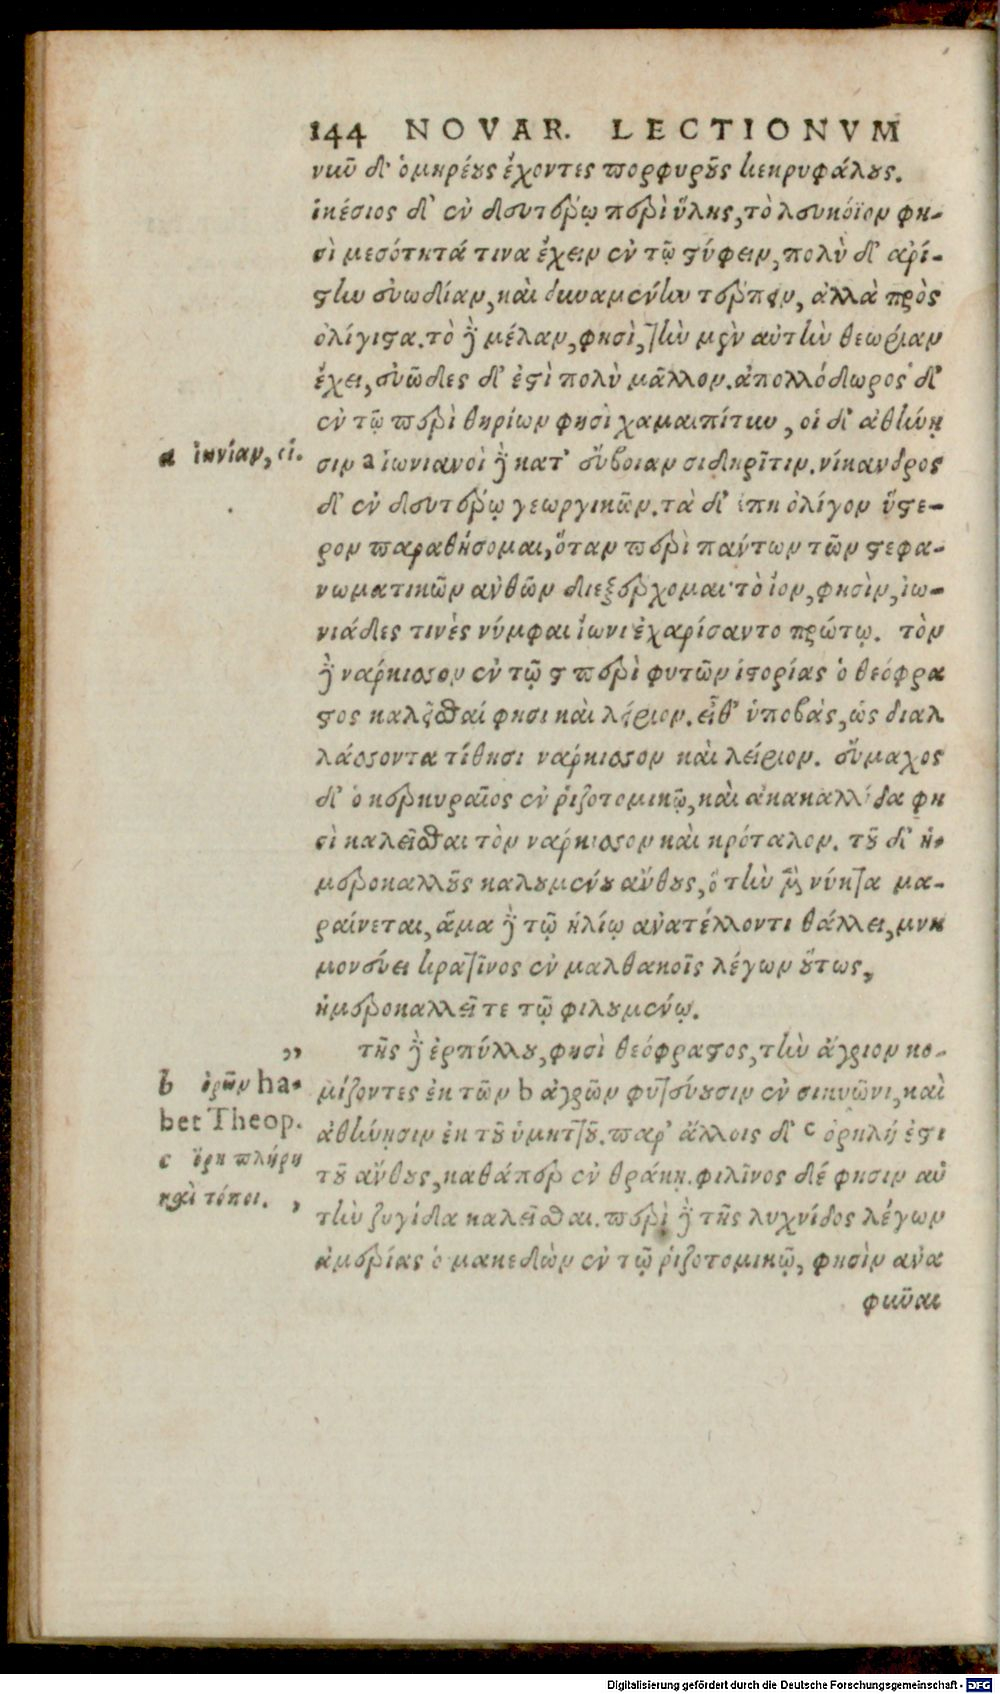 144 NOVAR. LECTIONVM
νιῦ δ' ὁμηρέους ἔχοντες πορφυροῦς κεκρυφάλους.
ἱκέσιος δ' ἐν δευτέρῳ περὶ ὕλης, τὸ λευκόϊον φη-
σὶ μεσότητά τινα ἔχειν ἐν τῷ στύφειν, πολὺ δ' ἀρί-
στην εὐωδίαν, καὶ δυναμένην τέρπειν, ἀλλὰ πρὸς
ὀλίγιστα. τὸ δὲ μέλαν, φησὶ, τὴν μὲν αὐτὴν θεωρίαν
ἔχει, εὐῶδες δ' ἐστὶ πολὺ μᾶλλον. ἀπολλόδωρος δ'
ἐν τῷ περὶ θηρίων φησὶ χαμαιπίτυν, οἱ δ' ἀθήνῃ
a ἰωνίαν, εἰ.
σιν a ἰωνιανοὶ δὲ κατ' εὔβοιαν σιδηρῖτιν. νίκανδρος
δ' ἐν δευτέρῳ γεωργικῶν. τὰ δ' ἔπη ὀλίγον ὕστε-
ρον παραθήσομαι, ὅταν περὶ πάντων τῶν στεφα-
νωματικῶν ἀνθῶν διεξέρχομαι· τὸ ἴον, φησὶν, ἰω-
νιάδες τινὲς νύμφαι ἴωνι ἐχαρίσαντο πρώτῳ. τὸν
δὲ νάρκισσον ἐν τῷ ϛ περὶ φυτῶν ἱστορίας ὁ θεόφρα
στος καλεῖσθαί φησι καὶ λείριον. εἶθ' ὑποβὰς, ὡς διαλ
λάσσοντα τίθησι νάρκισσον καὶ λείριον. εὔμαχος
δ' ὁ κερκυραῖος ἐν ῥιζοτομικῷ, καὶ ἀκακαλλίδα φη
σὶ καλεῖσθαι τὸν νάρκισσον καὶ κρόταλον. τοῦ δ' ἡ-
μεροκαλλοῦς καλουμένου ἄνθους, ὃ τὴν μὲν νύκτα μα-
ραίνεται, ἅμα δὲ τῷ ἡλίῳ ἀνατέλλοντι θάλλει, μνη
μονεύει κρατῖνος ἐν μαλθακοῖς λέγων οὕτως,
ἡμεροκαλλεῖ τε τῷ φιλουμένῳ.
τῆς δὲ ἑρπύλλου, φησὶ θεόφραστος, τὴν ἄγριον κο-
b ὀρῶν ha-
bet Theop.
μίζοντες ἐκ τῶν b ἀγρῶν φυτεύουσιν ἐν σικυῶνι, καὶ
ἀθήνῃσιν ἐκ τοῦ ὑμηττοῦ. παρ' ἄλλοις δ' c ὀρηλή ἐστι
c ὄρη πλήρη
καὶ τόποι.
τοῦ ἄνθους, καθάπερ ἐν θράκῃ. φιλῖνος δέ φησιν αὐ
τὴν ζυγίδα καλεῖσθαι. περὶ δὲ τῆς λυχνίδος λέγων
ἀμερίας ὁ μακεδὼν ἐν τῷ ῥιζοτομικῷ, φησὶν ἀνα
φῦναι
Digitalisierung gefördert durch die Deutsche Forschungsgemeinschaft - DFG